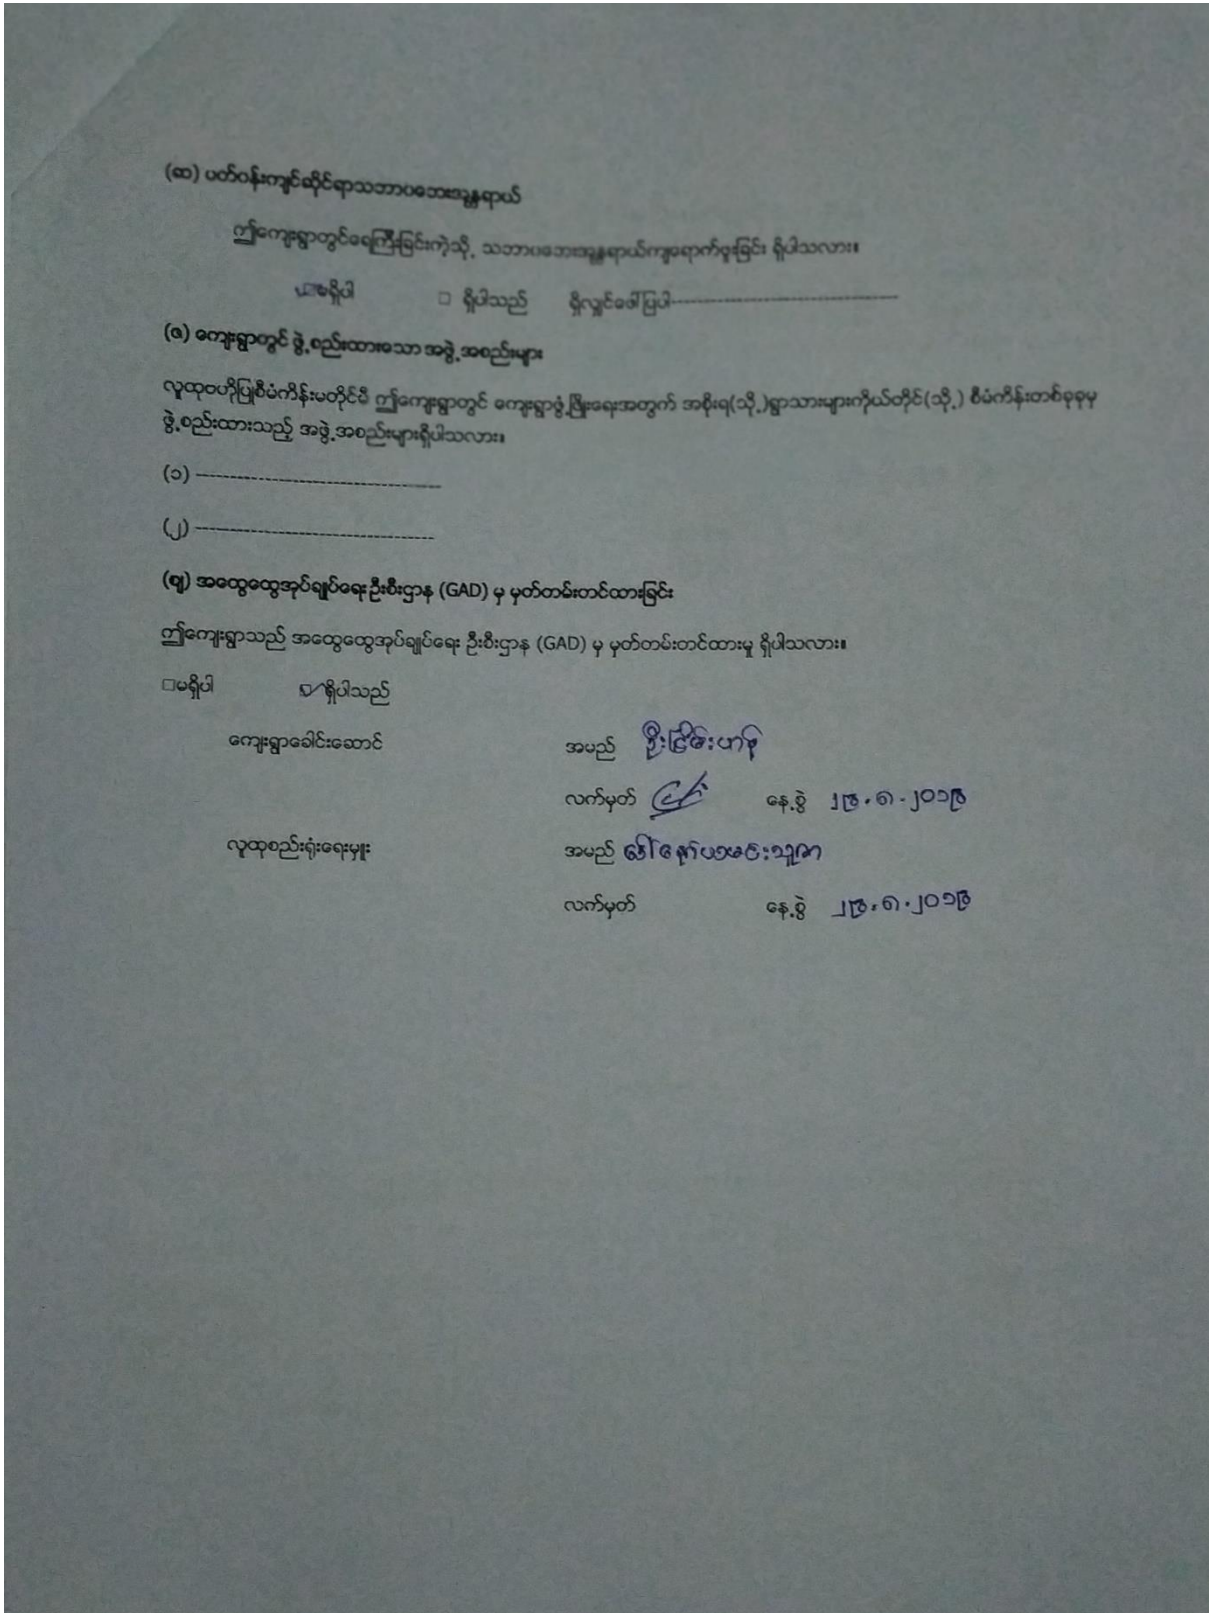 (ဆ) ပတ်ဝန်းကျင်ဆိုင်ရာသဘာဝဘေးအန္တရာယ်
ဤကျေးရွာတွင်ရေကြီးခြင်းကဲ့သို့ သဘာဝဘေးအန္တရာယ်ကျရောက်ဖူးခြင်း ရှိပါသလား။
☑မရှိပါ □ ရှိပါသည် ရှိလျှင်ဖေါ်ပြပါ-----------------------------------
(ဇ) ကျေးရွာတွင် ဖွဲ့စည်းထားသော အဖွဲ့အစည်းများ
လူထုဗဟိုပြုစီမံကိန်းမတိုင်မီ ဤကျေးရွာတွင် ကျေးရွာဖွံ့ဖြိုးရေးအတွက် အစိုးရ(သို့)ရွာသားများကိုယ်တိုင်(သို့) စီမံကိန်းတစ်ခုခုမှ
ဖွဲ့စည်းထားသည့် အဖွဲ့အစည်းများရှိပါသလား။
(၁) -----------------------------------
(၂) -----------------------------------
(ဈ) အထွေထွေအုပ်ချုပ်ရေးဦးစီးဌာန (GAD) မှ မှတ်တမ်းတင်ထားခြင်း
ဤကျေးရွာသည် အထွေထွေအုပ်ချုပ်ရေး ဦးစီးဌာန (GAD) မှ မှတ်တမ်းတင်ထားမှု ရှိပါသလား။
□မရှိပါ ☑ရှိပါသည်
ကျေးရွာခေါင်းဆောင် အမည် ဦးငြိမ်းဟန်
လက်မှတ် နေ့စွဲ ၂၉.၈.၂၀၁၉
လူထုစည်းရုံးရေးမှူး အမည် ဒေါ်နော်ယမင်းသူဇာ
လက်မှတ် နေ့စွဲ ၂၉.၈.၂၀၁၉